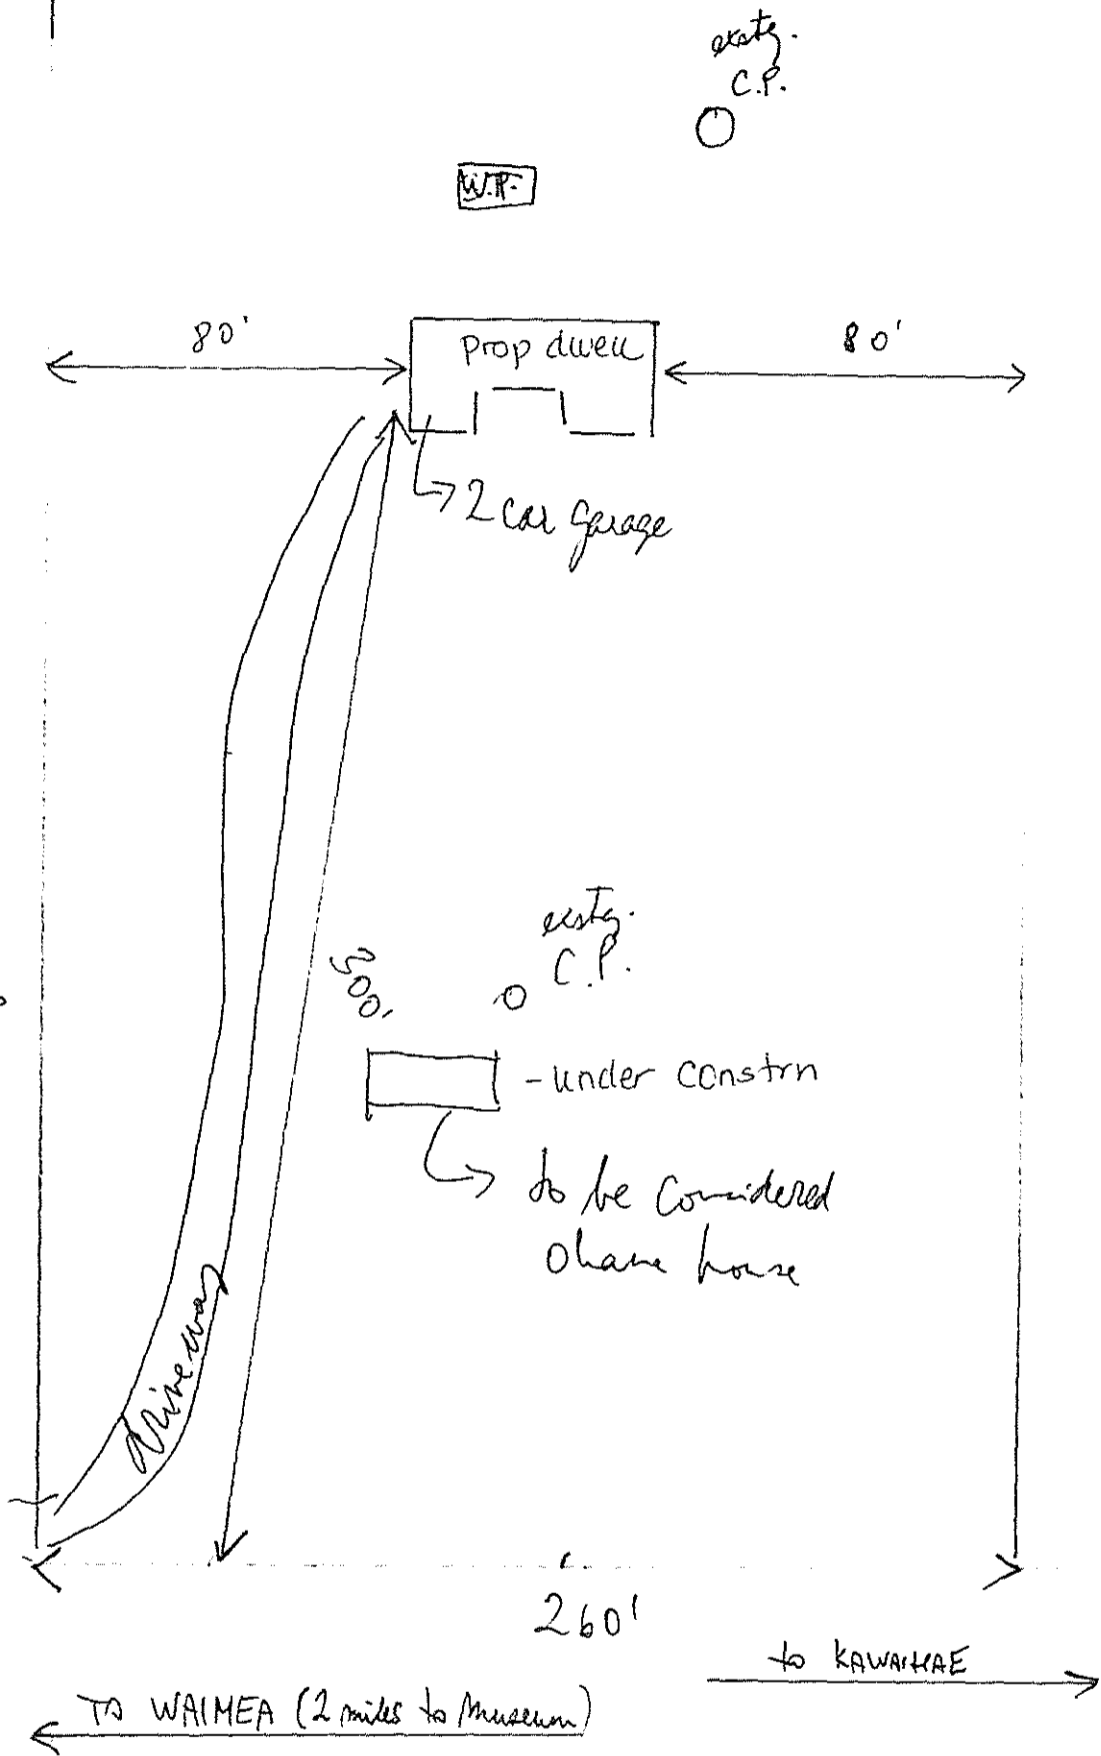 exstg.
C.P.
W.P.
80'
prop dwell
80'
2 car garage
exstg.
C.P.
300'
- under constrn
to be considered
Ohana house
driveway
260'
to KAWAIHAE
TO WAIMEA (2 miles to Museum)